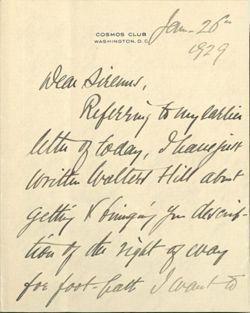 COSMOS CLUB
WASHINGTON, D.C.
Jan. 26th
1929
Dear Sirems,
Referring to my earlier
letter of today, I have just
written Walters Hill about
getting & bringing you descrip-
tion of the right of way
for foot-path I want to